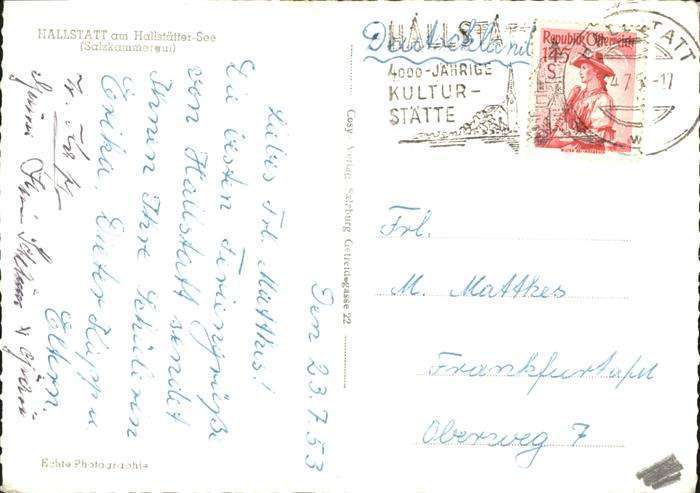 HALLSTATT am Hallstätter-See
(Salzkammergut)
Den 23.7.53
Liebes Frl. Matthes!
Die besten Feriengrüße
von Hallstatt sendet
Ihnen Ihre Schülerin
Erika,
Eltern.
Echte Photographie
Cosy Verlag Salzburg Getreidegasse 22
Deutschland
HALLSTATT
4000-JÄHRIGE
KULTUR-
STÄTTE
Republik Österreich
1.45
S
HALLSTATT
Frl.
M. Matthes
Frankfurt
Oberweg 7